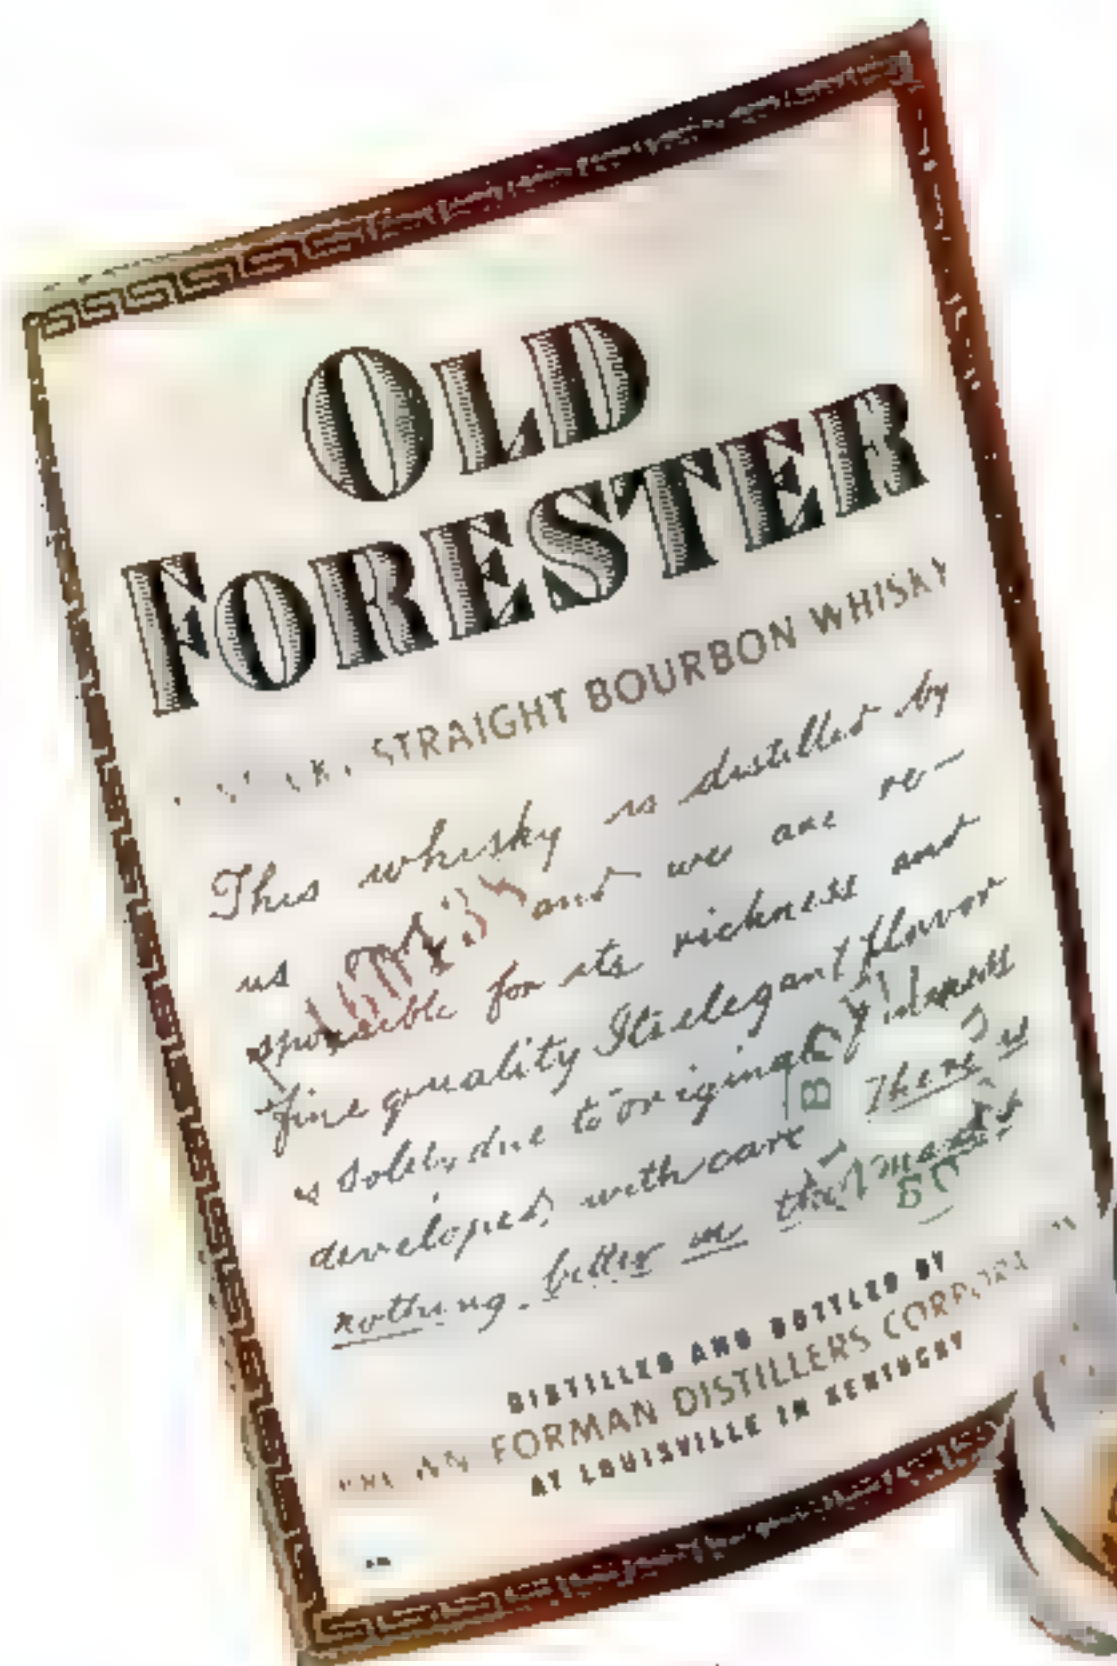 OLD
FORESTER
STRAIGHT BOURBON WHISKY
This whisky is distilled by
us and we are re-
sponsible for its richness and
fine quality Its elegant flavor
is solely due to original fineness
developed with care. There is
nothing better in the market
DISTILLED AND BOTTLED BY
FORMAN DISTILLERS
AT LOUISVILLE IN KENTUCKY